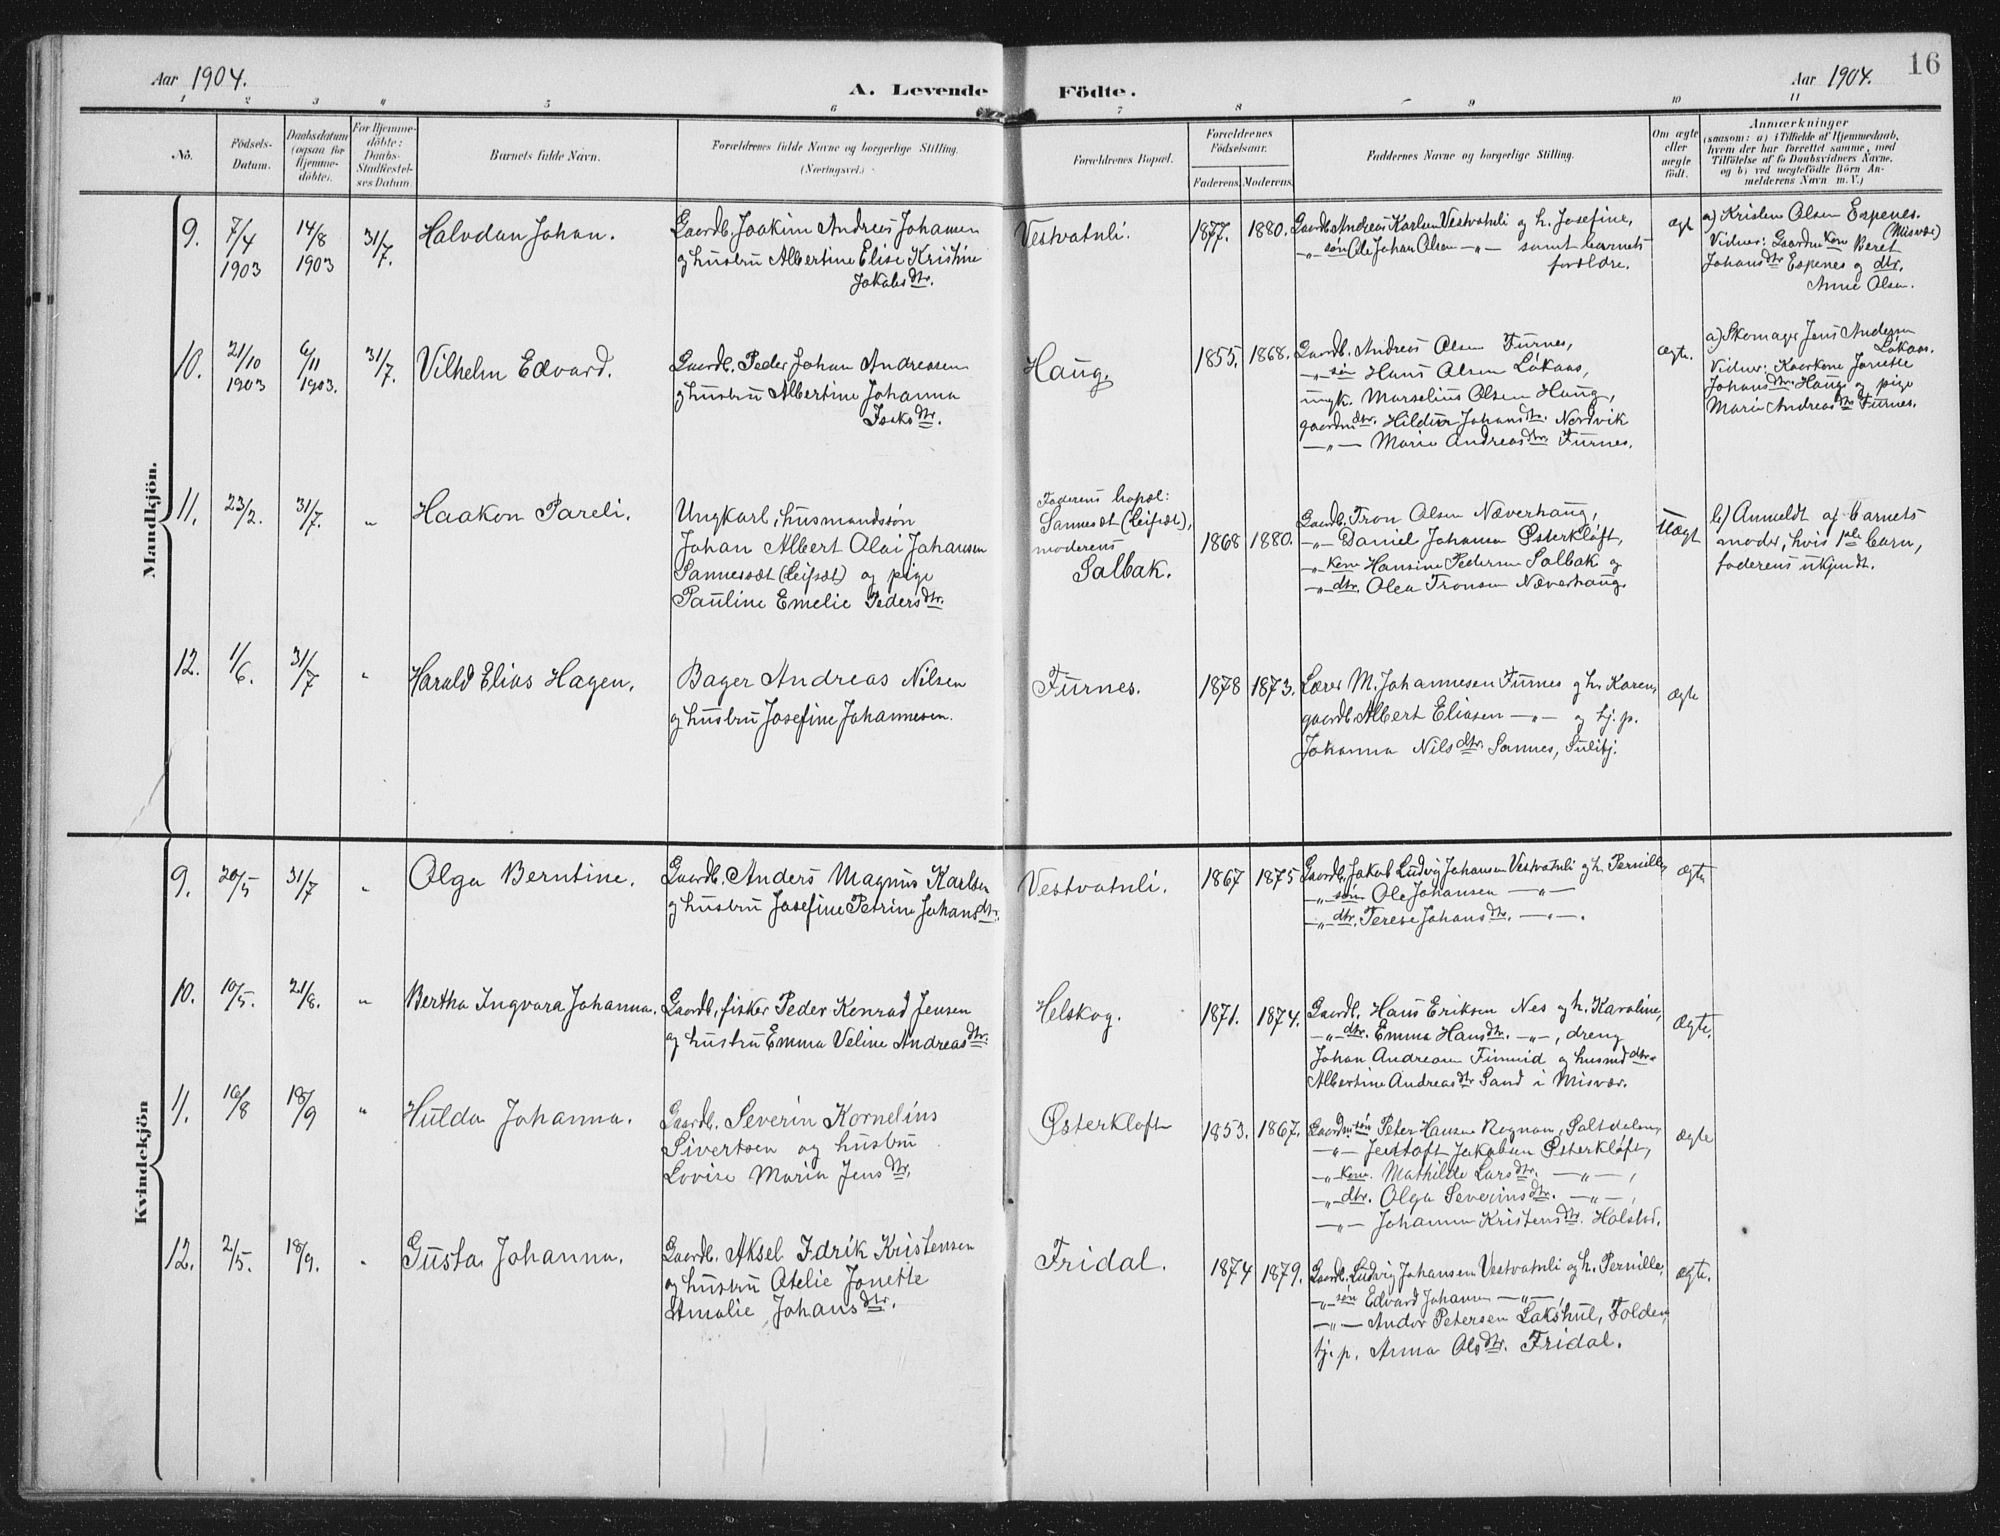 16
Aar 1904.
A. Levende Födte.
Aar 1904.
1 2 3 4 5 6 7 8 9 10 11
No.
Födsels-Datum.
Daabsdatum (ogsaa for Hjemme-döbte).
For Hjemme-döbte: Daabs-Stadfæstel-ses Datum
Barnets fulde Navn.
Forældrenes fulde Navne og borgerlige Stilling. (Næringsvei.)
Forældrenes Bopæl.
Forældrenes Födselsaar.
Faderens. Moderens.
Faddernes Navne og borgerlige Stilling.
Om ægte eller uægte födt.
Anmærkninger
(saasom: a) i Tilfælde af Hjemmedaab,
hvem der har forrettet samme, med
Tilföielse af to Daabsvidners Navne,
og b) ved uægtefödte Börn An-
melderens Navn m. V.)
Mandkjön.
9. 7/4 1903 14/8 1903 31/7. Halvdan Johan.
Gaardb. Joakim Andreas Johansen
og hustru Albertine Elise Kristine
Jakobsdtr.
Vestvatnli. 1877. 1880.
Gaardb. Andreas Karlsen Vestvatnli og h. Josefine,
-"- søn Ole Johan Olsen -"- samt barnets
forældre.
ægte
a) Kristen Olsen Espenes.
(Misvær)
Vidner: Gaardm.kone Beret
Johansdtr Espenes og dtr.
Anne Olsen.
10. 21/10 1903 6/11 1903. 31/7. Vilhelm Edvard.
Gaardb. Peder Johan Andreasen
og hustru Albertine Johanna
Isaksdtr.
Haug. 1855. 1868.
Gaardb. Andreas Olsen Furnes,
-"- søn Hans Olsen Løkaas,
ungk. Marselius Olsen Haug,
gaardmdtr. Hildur Johansdtr. Nordvik
-"- Marie Andreasdtr. Furnes.
ægte.
a) Skomager Jens Andersen
Løkaas.
Vidner: Kaarkone Jonette
Johansdtr. Haug og pige
Marie Andreasdtr Furnes.
11. 23/2. 31/7. " Haakon Pareli.
Ungkarl, husmandssøn
Johan Albert Olai Johansen
Sannesæt (Leifsæt) og pige
Pauline Emelie Pedersdtr.
Faderens bopæl:
Sannesæt (Leifsæt),
moderens
Salbak.
1868 1880.
Gaardb. Tron Olsen Næverhaug,
-"- Daniel Johansen Østerkløft,
-"- kone Hansine Pedersen Salbak og
-"- dtr. Olea Tronsen Næverhaug.
Uægte
b) Anmeldt af barnets
moder, hvis 1ste barn,
faderens ukjendt.
12. 1/6. 31/7 " Harald Elias Hagen.
Bager Andreas Nilsen
og hustru Josefine Johannesen.
Furnes. 1878 1873.
Lærer M. Johannesen Furnes og h. Karen,
gaardb. Albert Eliasen -"- og tj. p.
Johanna Nilsdtr. Sannes, Sulitj.
ægte
Kvindekjön
9. 20/5 31/7 " Olga Berntine.
Gaardb. Anders Magnus Karlsen
og hustru Josefine Petrine Johansdtr.
Vestvatnli. 1867 1875
Gaardb. Jakob Ludvig Johansen Vestvatnli og h. Pernille,
-"- søn Ole Johansen -"-
-"- dtr. Terese Johansdtr. -"-.
ægte
10. 10/5. 21/8. " Bertha Ingvara Johanna.
Gaardb., fisker Peder Konrad Jensen
og hustru Emma Veline Andreasdtr.
Helskog. 1871. 1874.
Gaardb. Hans Eriksen Nes og h. Karoline,
-"- dtr. Emma Hansdtr. -"-, dreng
Johan Andreasen Finneid og husmdtr.
Albertine Andreasdtr Sand i Misvær.
ægte.
11. 16/8 18/9 " Hulda Johanna.
Gaardb. Severin Kornelius
Sivertsen og hustru
Lovise Maria Jensdtr.
Østerkløft 1853. 1867.
Gaardmsøn Peter Hansen Rognan, Saltdalen,
-"- Jentoft Jakobsen Østerkløft,
-"- kone Mathilde Larsdtr. -"-,
-"- dtr. Olga Severinsdtr. -"-,
-"- Johanna Kristensdtr. Halstad.
ægte
12. 2/5. 18/9. " Gusta Johanna.
Gaardb. Aksel Idrik Kristensen
og hustru Otelie Jonette
Amalie Johansdtr.
Fridal. 1874 1879.
Gaardb. Ludvig Johansen Vestvatnli og h. Pernille,
-"- søn Edvard Johansen -"-,
-"- Andor Petersen Lakshul, Folden,
tj. p. Anna Olsdtr. Fridal.
ægte.